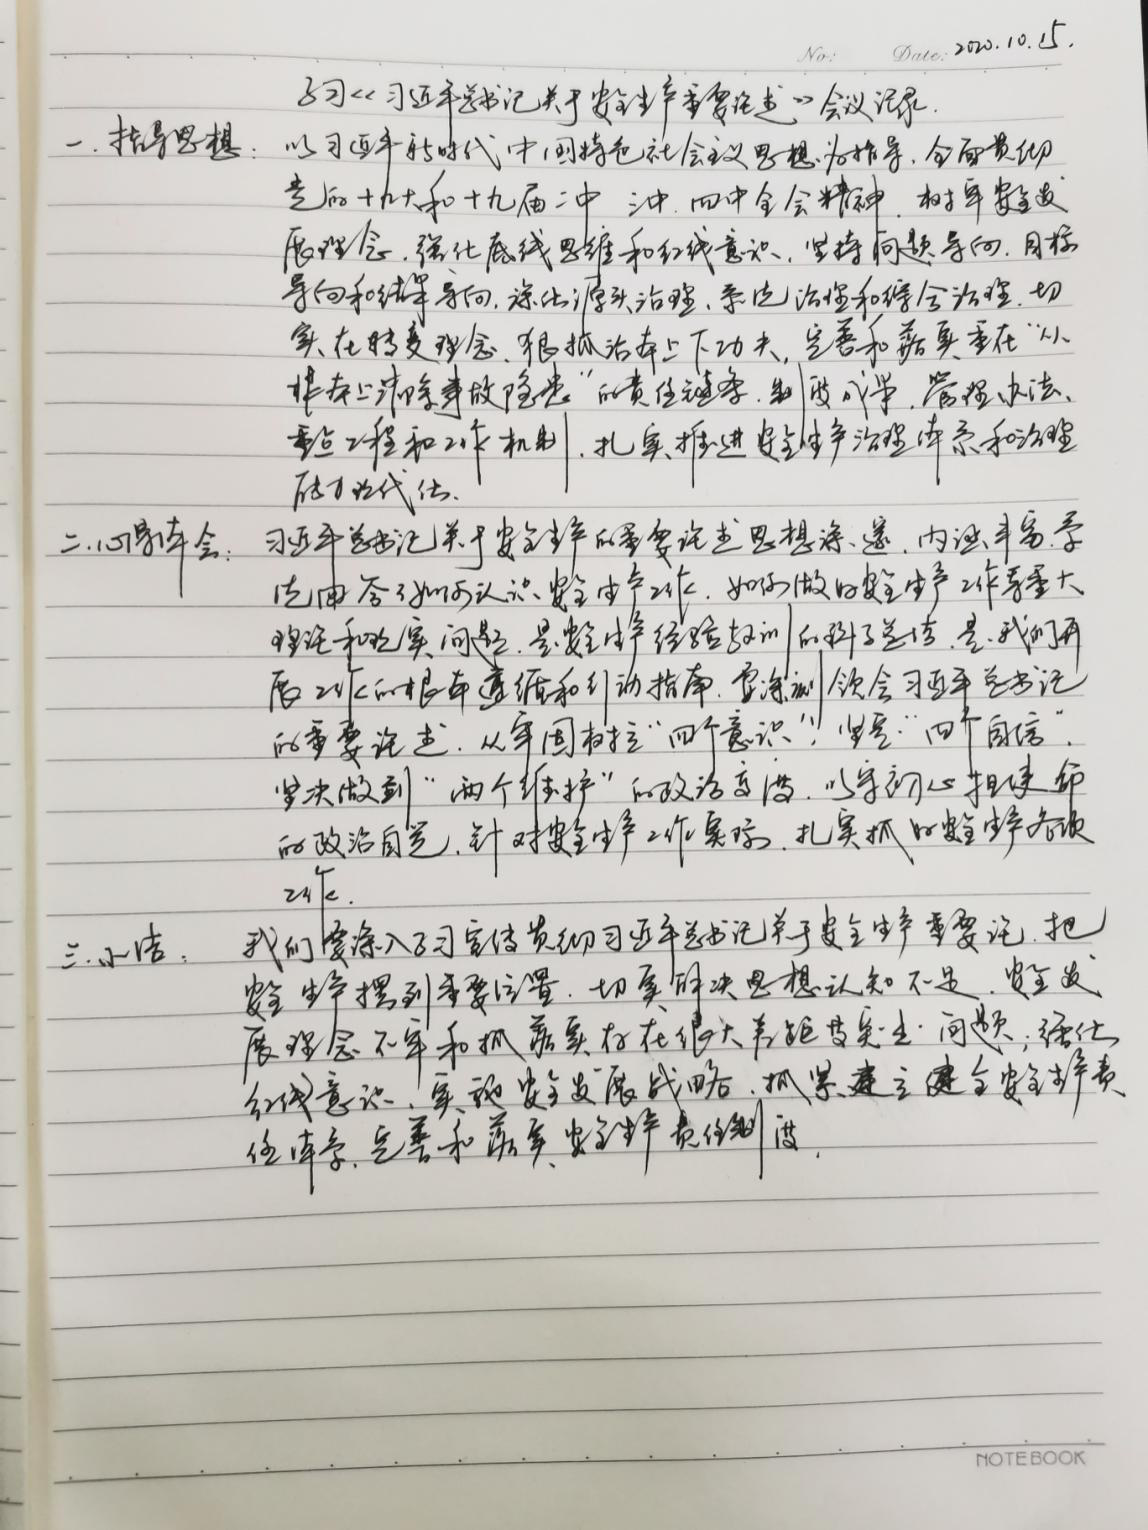 No: Date: 2020.10.15.
学习《习近平总书记关于安全生产重要论述》会议记录.
一.指导思想: 以习近平新时代中国特色社会主义思想为指导.全面贯彻
党的十九大和十九届二中 三中.四中全会精神.树牢安全发
展理念.强化底线思维和红线意识.坚持问题导向.目标
导向和结果导向.深化源头治理.系统治理和综合治理.切
实在转变理念.狠抓治本上下功夫.完善和落实重在"从
根本上消除事故隐患"的责任链条.制度成果.管理办法、
重点工程和工作机制.扎实推进安全生产治理体系和治理
能力现代化.
二.心得体会: 习近平总书记关于安全生产的重要论述思想深邃.内涵丰富.系
统回答了如何认识安全生产工作.如何做好安全生产工作等重大
理论和现实问题.是安全生产经验教训的科学总结.是我们开
展工作的根本遵循和行动指南.要深刻领会习近平总书记
的重要论述.从牢固树立"四个意识".坚定"四个自信".
坚决做到"两个维护"的政治高度.以守初心担使命
的政治自觉.针对安全生产工作实际.扎实抓好安全生产各项
工作.
三.小结: 我们要深入学习宣传贯彻习近平总书记关于安全生产重要论.把
安全生产摆到重要位置.切实解决思想认知不足.安全发
展理念不牢和抓落实存在很大差距等突出问题;强化
红线意识.实施安全发展战略.抓紧建立健全安全生产责
任体系.完善和落实安全生产责任制度.
NOTEBOOK